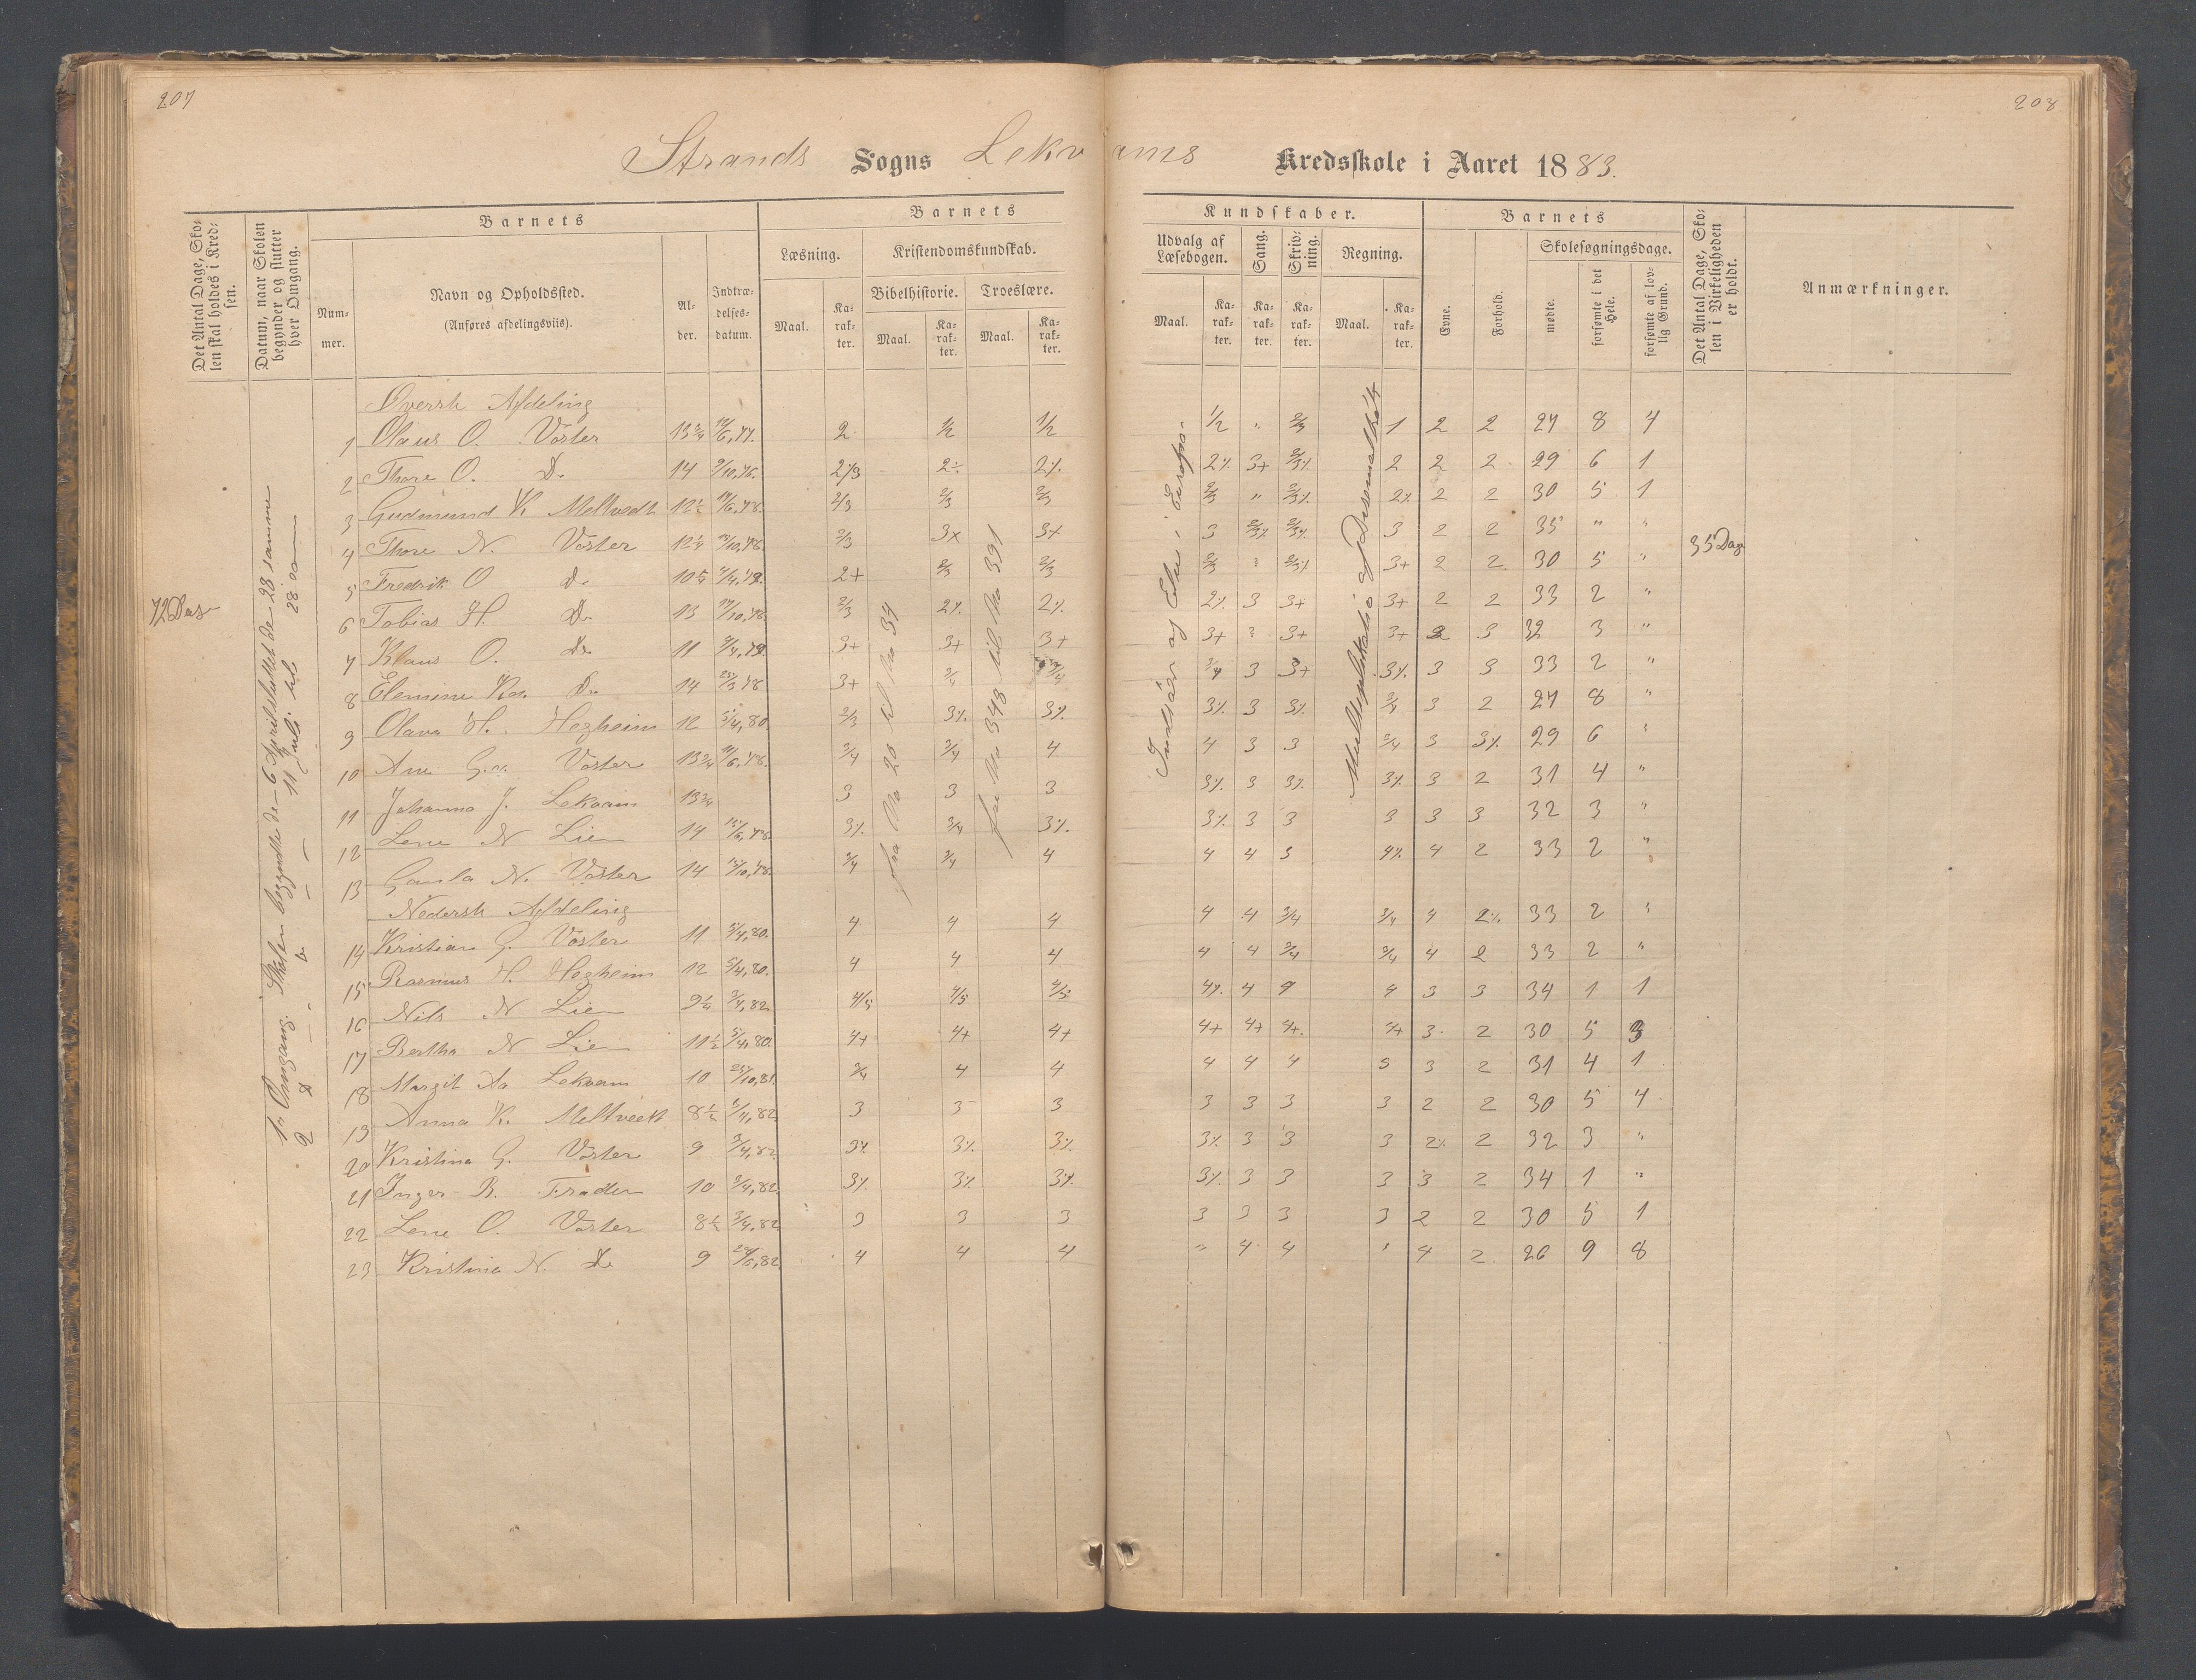 207
208
Strands Sogns Lekvams Kredsskole i Aaret 1883.
Det Antal Dage, Skolen skal holdes i Kredsen.
Datum, naar Skolen begynder og slutter hver Omgang.
Barnets
Nummer.
Navn og Opholdssted.
(Anføres afdelingsviis).
Alder.
Indtrædelsesdatum.
Barnets Kundskaber.
Læsning.
Maal.
Karakter.
Kristendomskundskab.
Bibelhistorie.
Maal.
Karakter.
Troeslære.
Maal.
Karakter.
Udvalg af Læsebogen.
Maal.
Karakter.
Sang.
Karakter.
Skrivning.
Karakter.
Regning.
Maal.
Karakter.
Barnets
Evne.
Forhold.
Skolesøgningsdage.
mødte.
forsømte i det Hele.
forsømte af lovlig Grund.
Det Antal Dage, Skolen i Virkeligheden er holdt.
Anmærkninger.
72 Dage
1ste Omgang. Skolen begyndte de 6 April sluttet de 28 samme
2 D. 11 Juli 28
fra No 20 til No 34
fra No 348 til No 391
Indsøer og Elve i Europa
Multiplikatio af Desemalbrøk
35 Dage
Øverste Afdeling
1 Olaus O. Voster 13 3/4 2 1/2 1/2 1/2 " 2/3 1 2 2 27 8 7
2 Thore O. D. 14 9/10,76. 2 2/3 2% 2% 2% 3+ 2/3% 2 2 2 29 6 1
3 Gudmund K Meltvedt 12 1/2 2/3 2/3 2/3 2/3 " 2/3% 2% 2 2 30 5 1
4 Thore N. Voster 12 1/4 2/3 3+ 3+ 3 2/3% 2/3% 3 2 2 35 " "
5 Fredrik O D. 2+ 2/3 2/3 2/3 2/3% 3+ 2 2 30 5 "
6 Tobias H. D. 13 2/3 2% 2% 2% 3 3+ 3+ 2 2 33 2 "
7 Klaus O. D. 11 3+ 3+ 3+ 3+ 3+ 3+ 2 3 32 3 "
8 Elemine D. 14 3+ 3/4 3/4 3/4 3 3+ 3% 3 3 33 2 "
9 Olava H. Hegheim 12 5/4,80 2/3 3% 3% 3% 3 3% 3/4 3 2 27 8 "
10 Ane G. Voster 13 3/4 3/4 3/4 4 4 3 3 3/4 3 3% 29 6 "
11 Johanna J. Lekvam 13 3/4 3 3 3 3% 3 3% 3% 3 2 31 4 "
12 Lene N Lie 14 3% 3/4 3% 3% 3 3 3 3 3 32 3 "
13 Gunla N. Voster 14 3/4 3/4 4 4 4 3 4% 4 2 33 2 "
Nederste Afdeling
14 Kristian G. Voster 11 5/4,80. 4 4 4 4 4 3/4 3/4 4 2% 33 2 "
15 Rasmus H. Hegheim 12 5/4,80. 4 4 4 4 4 3/4 3/4 4 2 33 2 "
16 Nils N Lie 9 1/4 3/4,82 4/5 4/5 4/5 4% 4 4 4 3 3 34 1 1
17 Bertha N Lie 11 1/2 5/4,80. 4+ 4+ 4+ 4+ 4+ 4+ 4+ 3 2 30 5 3
18 Margit Aa Lekvam 10 3/4 4 4 4 4 4 3 3 2 31 4 1
19 Anna K. Meltvedt 8 1/2 3 3 3 3 3 3 3 2 2 30 5 4
20 Kristina G. Voster 9 3/4,82 3% 3% 3% 3% 3 3 3 2% 2 32 3 "
21 Inger R. Fraden 10 3/4,82. 3% 3% 3% 3% 3 3 3 3 2 34 1 "
22 Lene O. Voster 8 1/2 3/4,82 3 3 3 3 3 3 3 2 2 30 5 1
23 Kristina N. D. 9 4 4 4 " 4 4 " 4 2 26 9 8